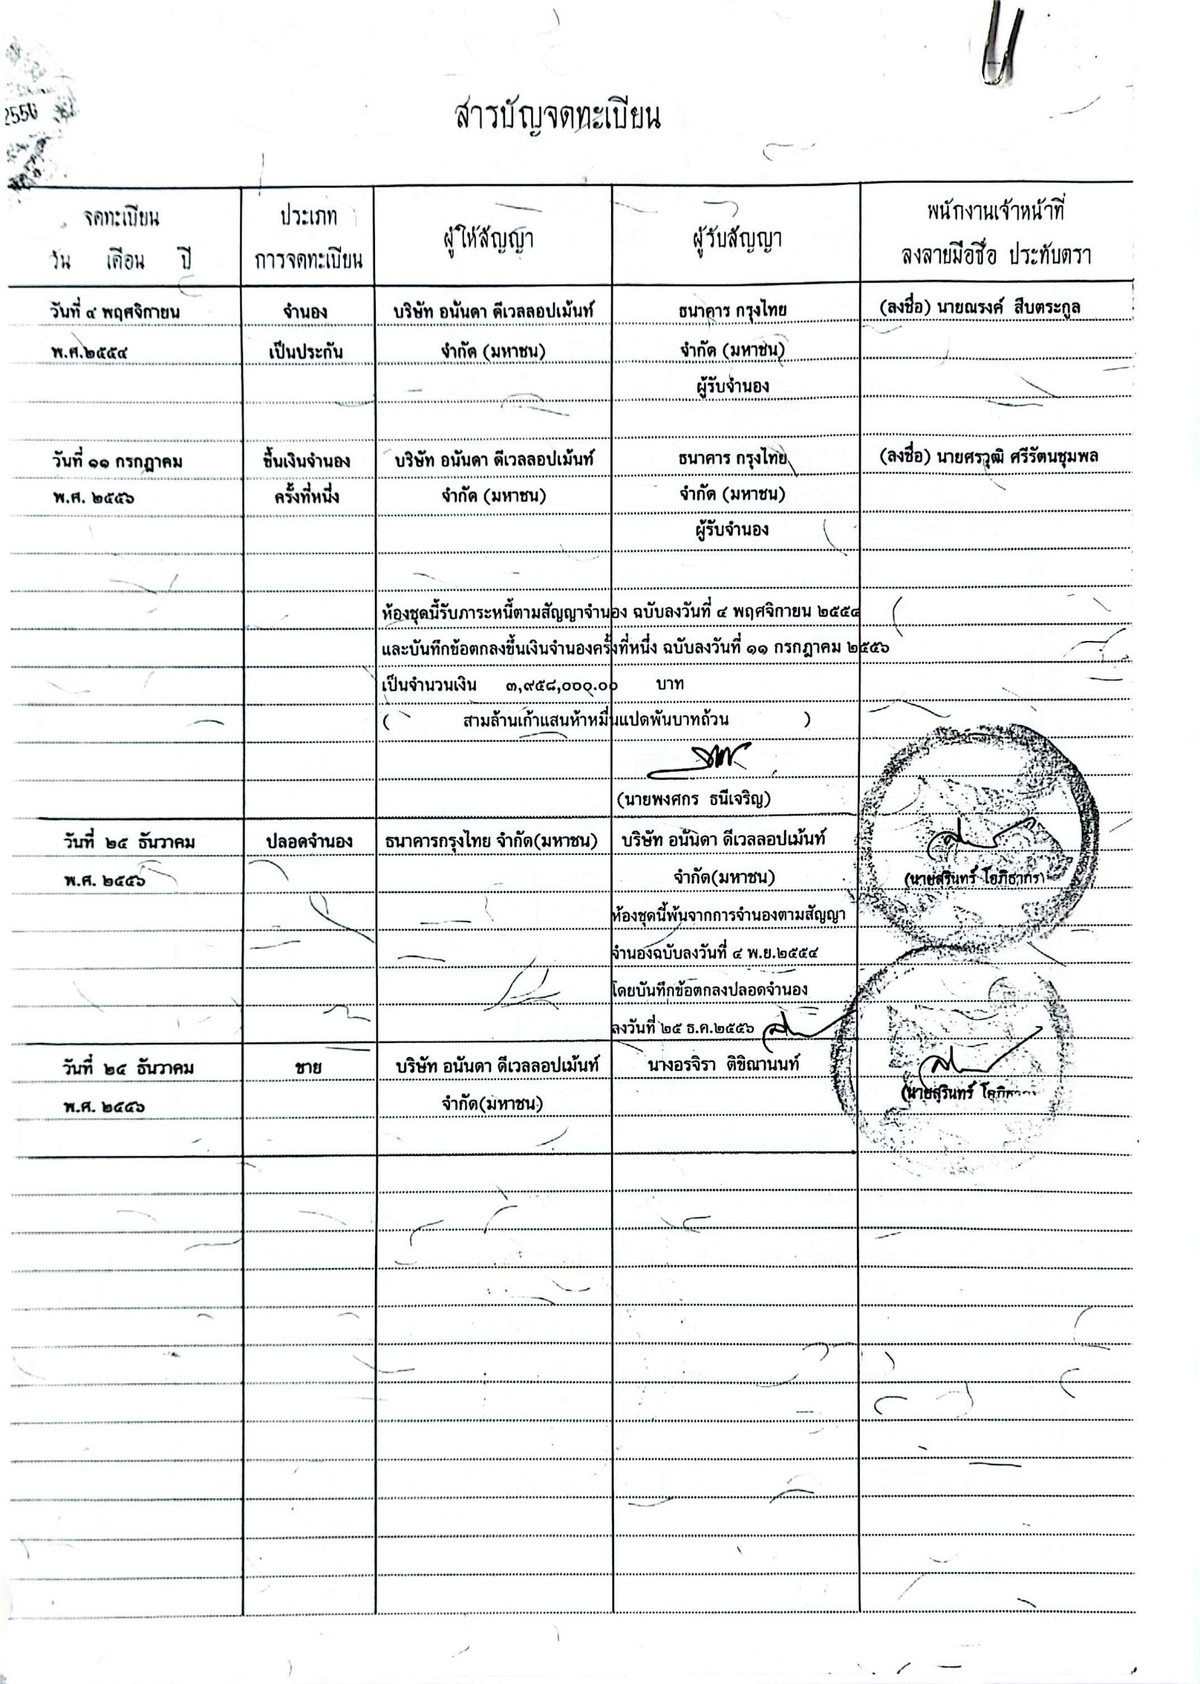 2556
สารบัญจดทะเบียน
จดทะเบียน
วัน เดือน ปี
ประเภท
การจดทะเบียน
ผู้ให้สัญญา
ผู้รับสัญญา
พนักงานเจ้าหน้าที่
ลงลายมือชื่อ ประทับตรา
วันที่ ๔ พฤศจิกายน จำนอง บริษัท อนันดา ดีเวลลอปเม้นท์ ธนาคาร กรุงไทย (ลงชื่อ) นายณรงค์ สืบตระกูล
พ.ศ.๒๕๕๔ เป็นประกัน จำกัด (มหาชน) จำกัด (มหาชน)
ผู้รับจำนอง
วันที่ ๑๑ กรกฎาคม ขึ้นเงินจำนอง บริษัท อนันดา ดีเวลลอปเม้นท์ ธนาคาร กรุงไทย (ลงชื่อ) นายศรวุฒิ ศรีรัตนชุมพล
พ.ศ. ๒๕๕๖ ครั้งที่หนึ่ง จำกัด (มหาชน) จำกัด (มหาชน)
ผู้รับจำนอง
ห้องชุดนี้รับภาระหนี้ตามสัญญาจำนอง ฉบับลงวันที่ ๔ พฤศจิกายน ๒๕๕๔
และบันทึกข้อตกลงขึ้นเงินจำนองครั้งที่หนึ่ง ฉบับลงวันที่ ๑๑ กรกฎาคม ๒๕๕๖
เป็นจำนวนเงิน ๓,๙๕๘,๐๐๐.๐๐ บาท
( สามล้านเก้าแสนห้าหมื่นแปดพันบาทถ้วน )
(นายพงศกร ธนีเจริญ)
วันที่ ๒๕ ธันวาคม ปลอดจำนอง ธนาคารกรุงไทย จำกัด(มหาชน) บริษัท อนันดา ดีเวลลอปเม้นท์
พ.ศ. ๒๕๕๖ จำกัด(มหาชน) (นายสุรินทร์ โอภิธากร)
ห้องชุดนี้พ้นจากการจำนองตามสัญญา
จำนองฉบับลงวันที่ ๔ พ.ย.๒๕๕๔
โดยบันทึกข้อตกลงปลอดจำนอง
ลงวันที่ ๒๕ ธ.ค.๒๕๕๖
วันที่ ๒๕ ธันวาคม ขาย บริษัท อนันดา ดีเวลลอปเม้นท์ นางอรจิรา ติขิณานนท์
พ.ศ. ๒๕๕๖ จำกัด(มหาชน) (นายสุรินทร์